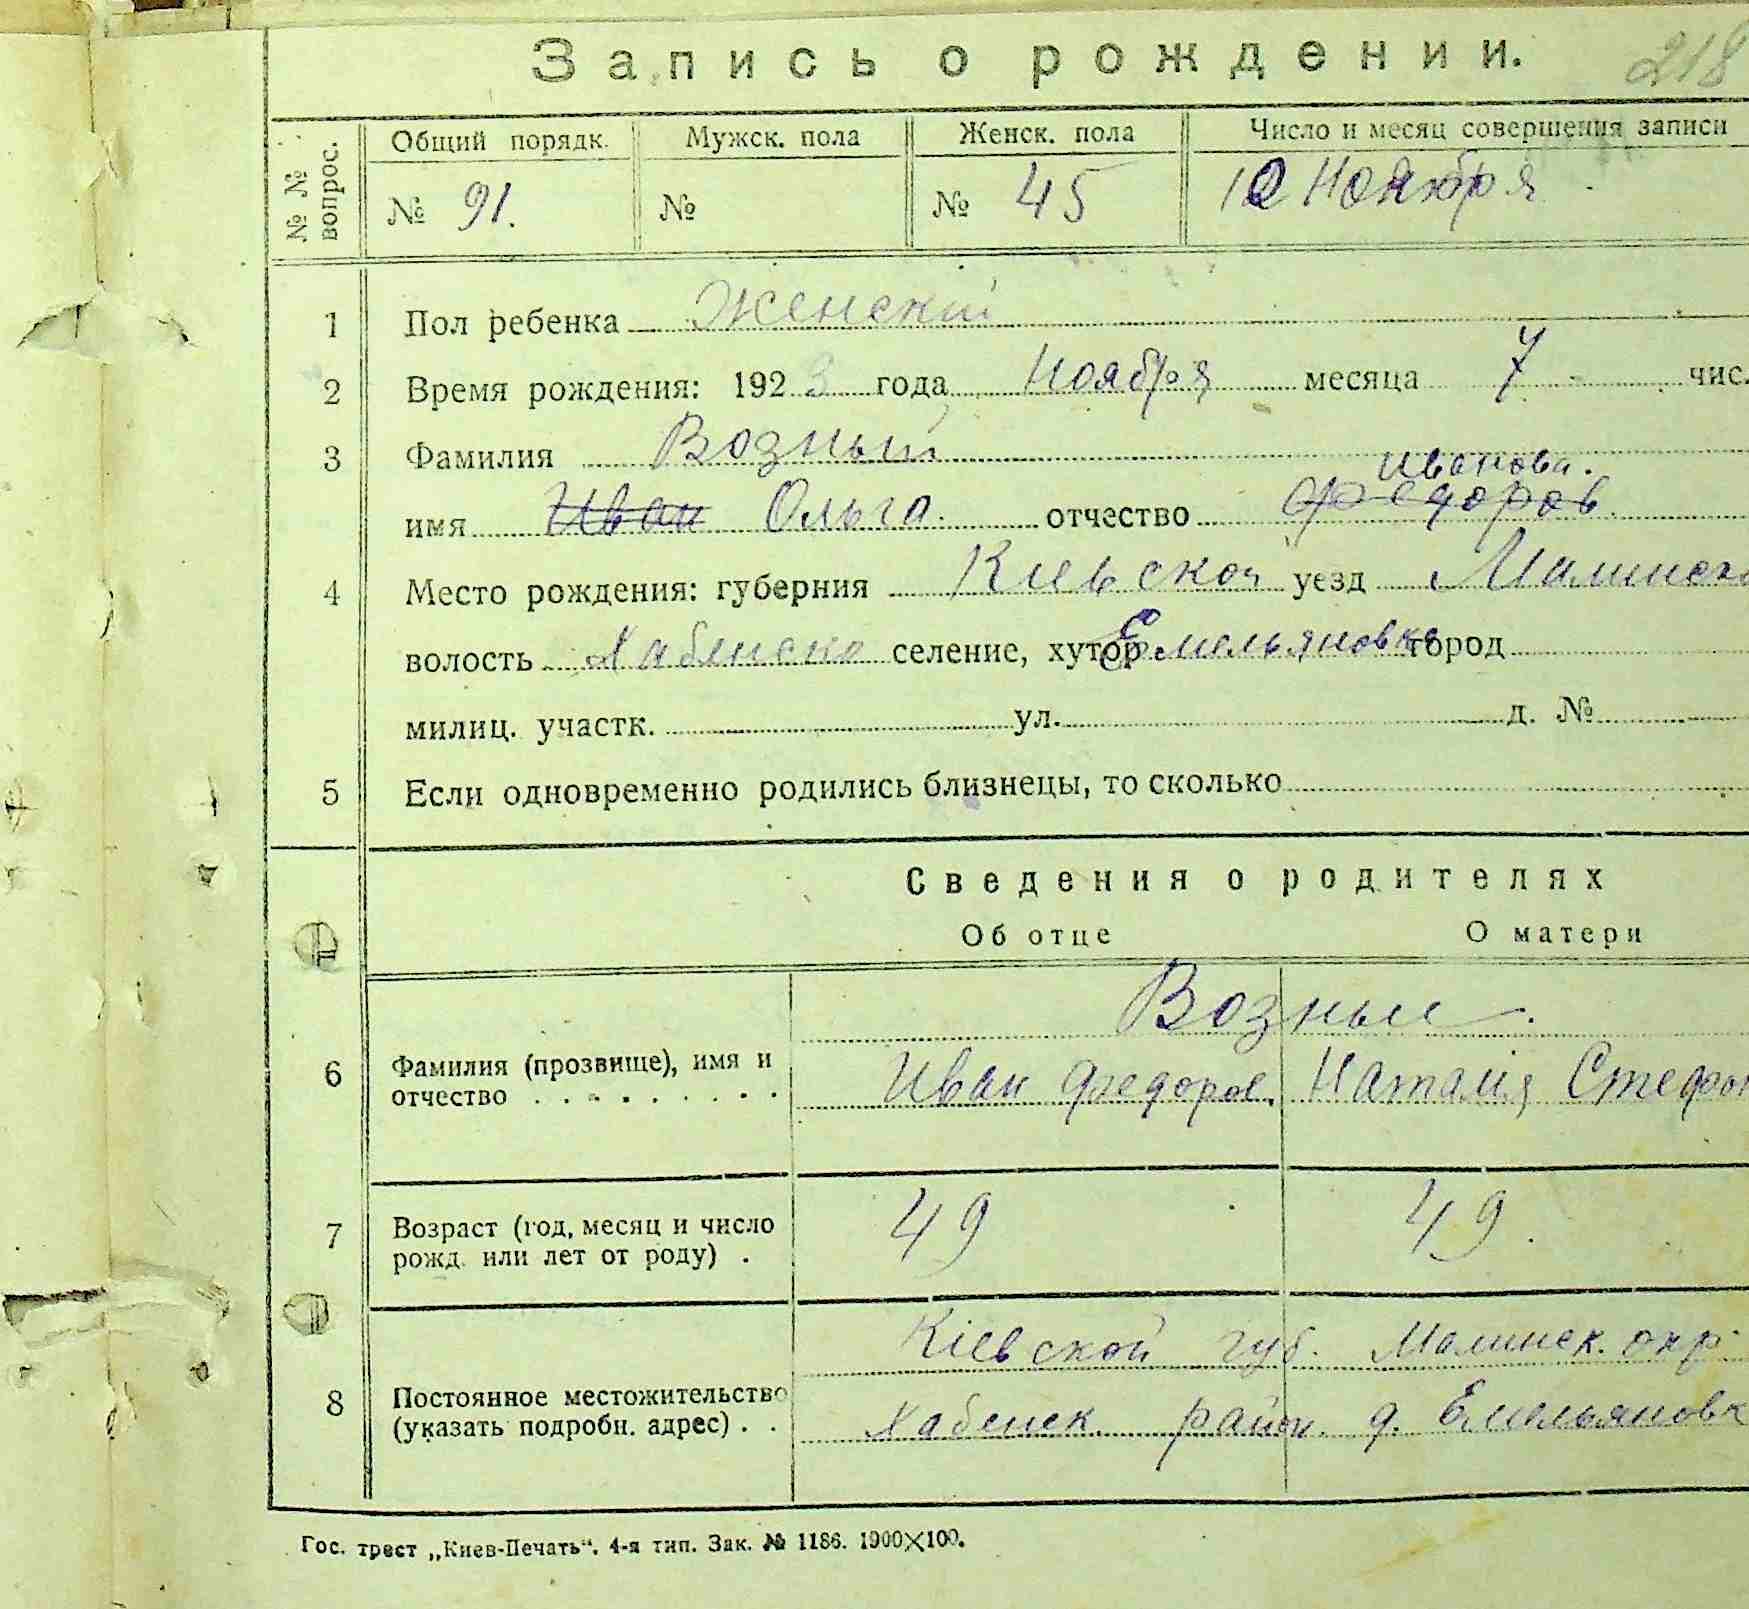 Запись о рождении.
218
№ № вопрос.
Общий порядк. Мужск. пола Женск. пола Число и месяц совершения записи
№ 91. № № 45 Ноября
1 Пол ребенка Женскій
2 Время рождения: 1923 года Ноября месяца 7 чис.
3 Фамилия Возный
Иванова.
имя Иван Ольга. отчество Федоров
4 Место рождения: губерния Киевской уезд Малинск
волость Хабенско селение, хутор Емельяновка город
милиц. участк. ул. д. №
5 Если одновременно родились близнецы, то сколько
Сведения о родителях
Об отце О матери
Возные.
6 Фамилия (прозвище), имя и отчество Иван Федоров. Наталія Стефан
7 Возраст (год, месяц и число рожд. или лет от роду) . 49 49.
Кіевской губ. Малинск. окр.
8 Постоянное местожительство (указать подробн. адрес) . . Хабенск. район. д. Емельяновк
Гос. трест „Киев-Печать“. 4-я тип. Зак. № 1186. 1900×100.